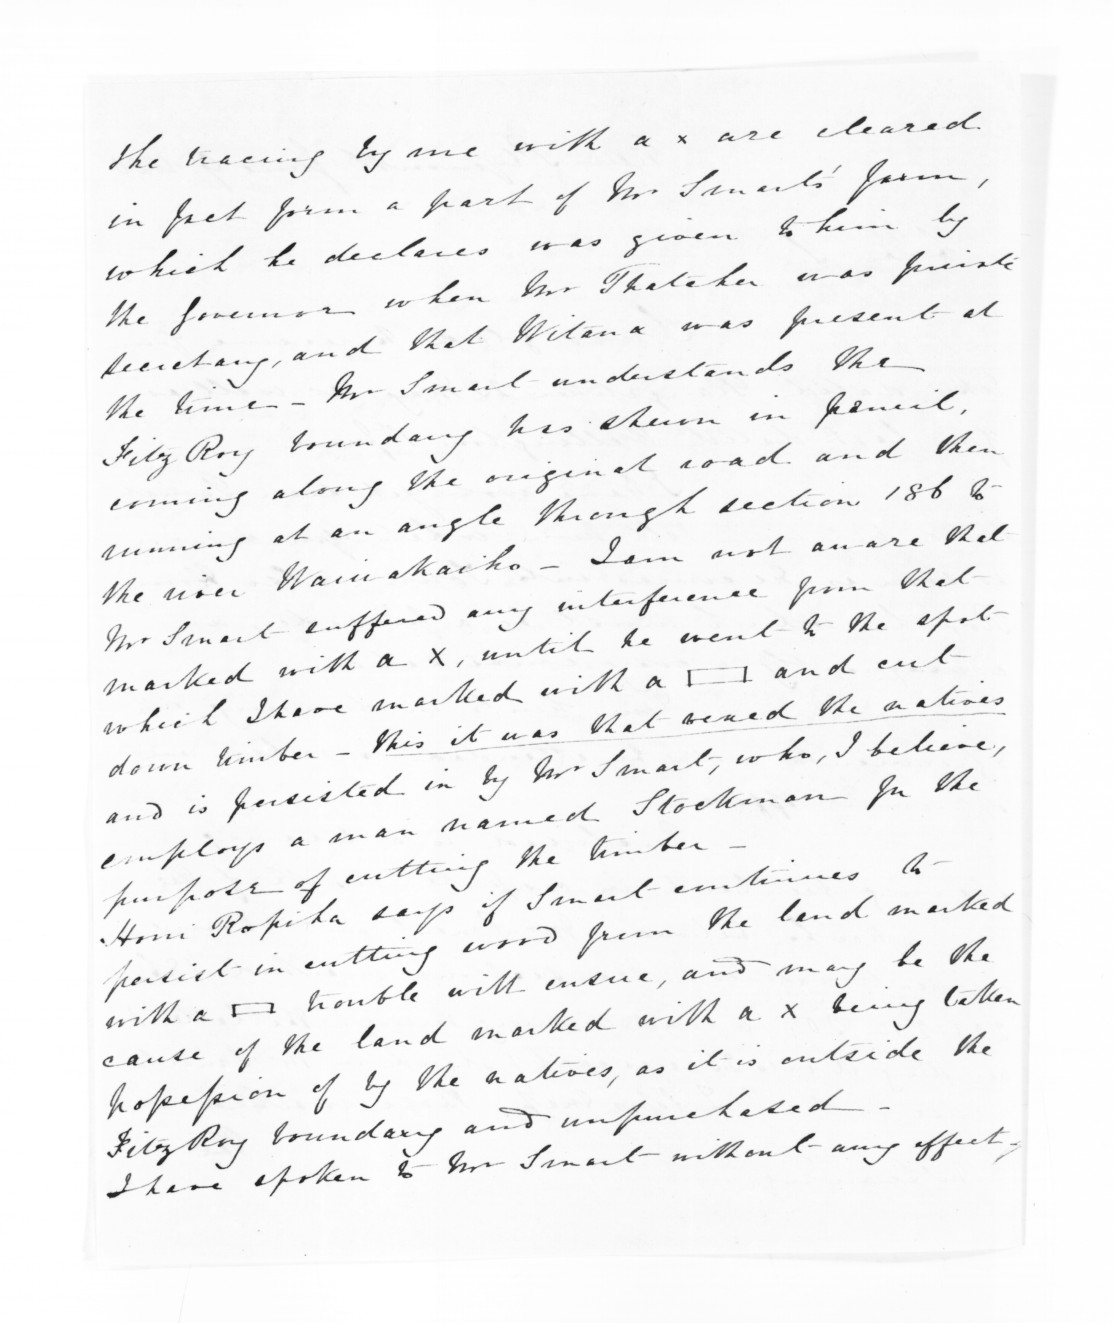 the tracing by me with a x are cleared
in fact form a part of Mr Smart's farm,
which he declares was given to him by
the Governor when Mr Thatcher was private
secretary, and that Witana was present at
the time – Mr Smart understands the
FitzRoy boundary has shewn in pencil,
coming along the original road and then
running at an angle through section 186 to
the river Waiwakaiho – I am not aware that
Mr Smart suffered any interference from that
marked with a x, until he went to the spot
which I have marked with a ▭ and cut
down timber – this it was that vexed the natives
and is persisted in by Mr Smart, who, I believe,
employs a man named Stockman for the
purpose of cutting the timber –
Honi Ropiha says if Smart continues to
persist in cutting wood from the land marked
with a ▭ trouble will ensue, and may be the
cause of the land marked with a x being taken
possession of by the natives, as it is outside the
FitzRoy boundary and unpurchased –
I have spoken to Mr Smart without any effect –,